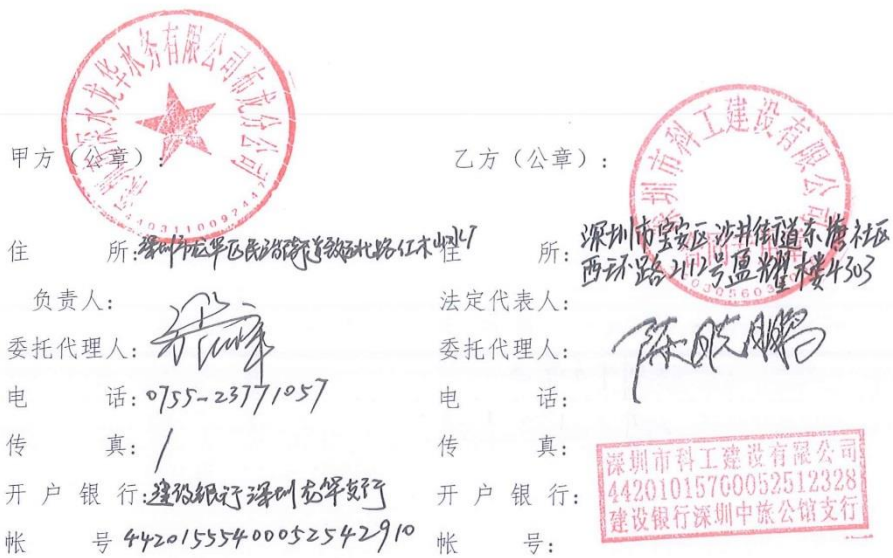 深圳市深水龙华水务有限公司布龙分公司
甲方（公章）：
住 所：深圳市龙华区民治街道致远北路红木山水厂
负责人：
委托代理人：
电 话：0755-23771057
传 真：/
开 户 银 行：建设银行深圳龙华支行
帐 号 44201555400052542910
深圳市科工建设有限公司
乙方（公章）：
住 所：深圳市宝安区沙井街道东塘社区
西环路2112号盈耀楼4303
法定代表人：
委托代理人：陈晓鹏
电 话：
传 真：
开 户 银 行：
帐 号：
深圳市科工建设有限公司
44201015700052512328
建设银行深圳中旅公馆支行